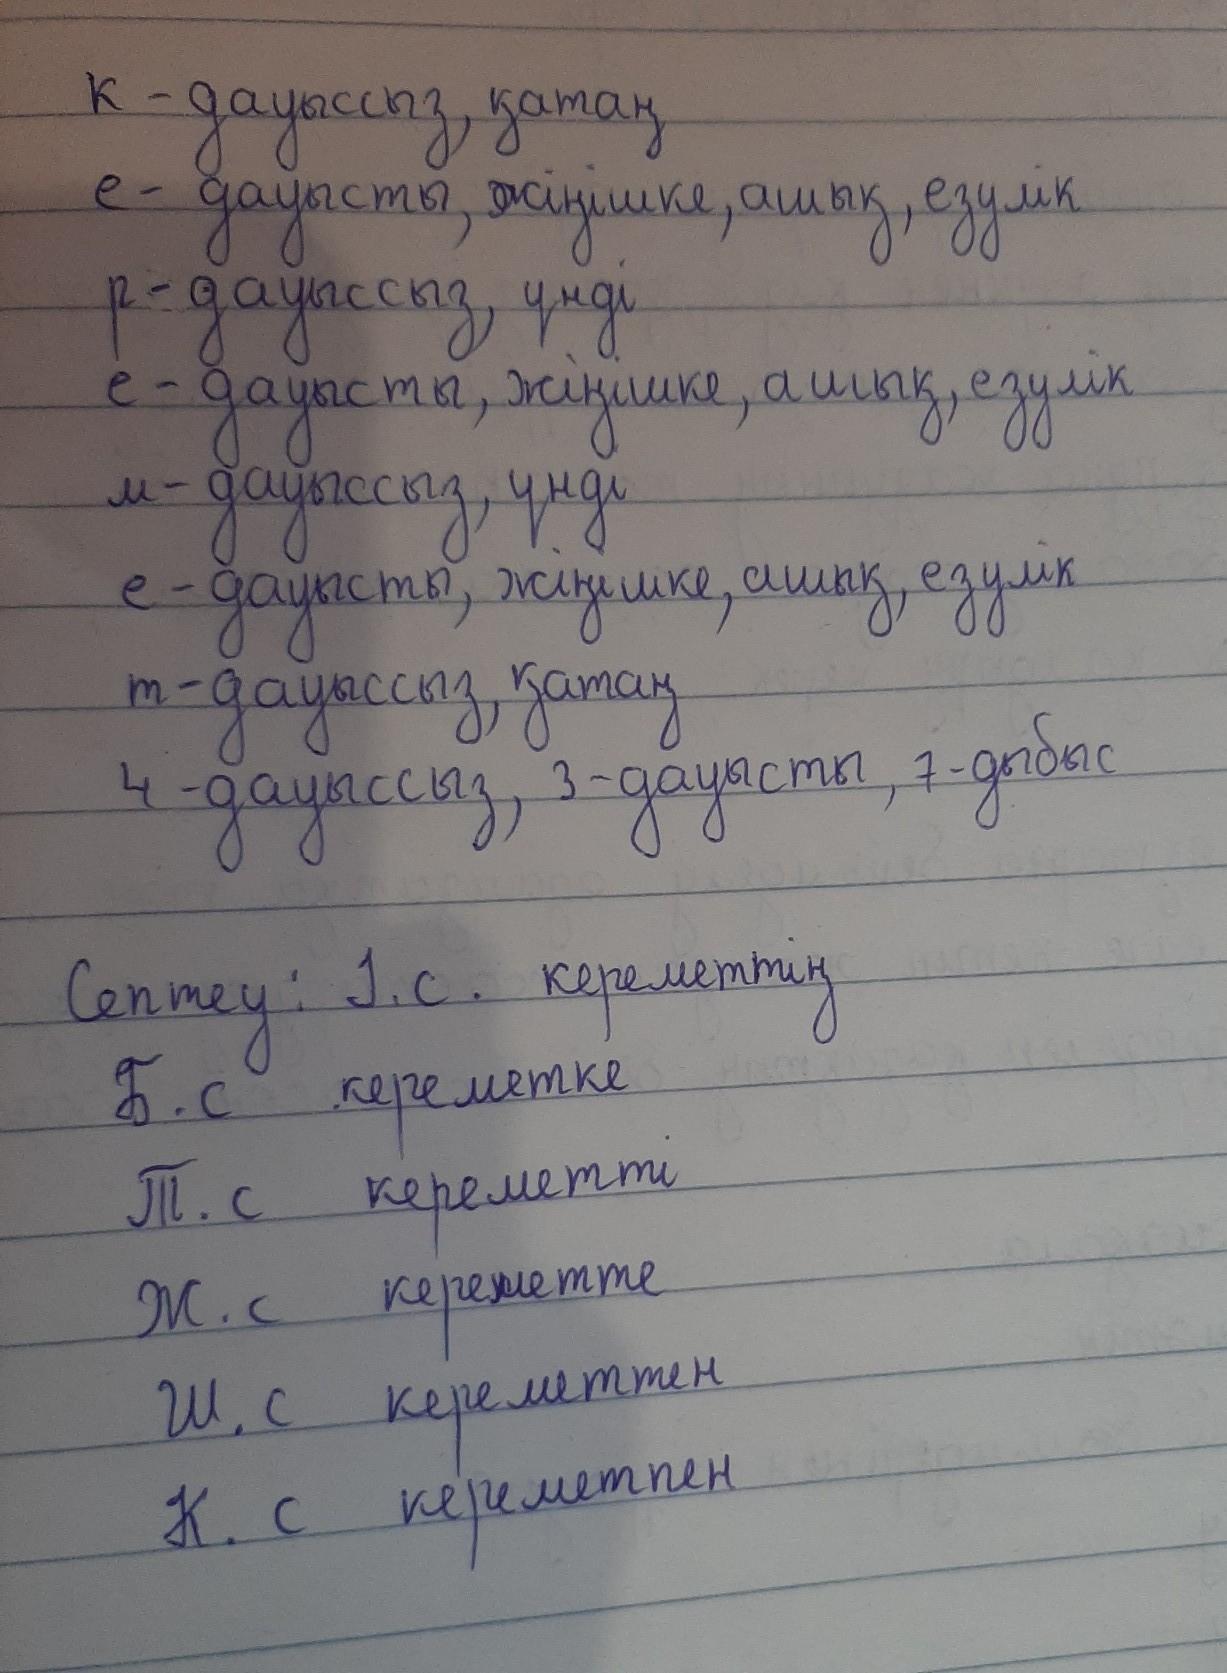 к - дауыссыз, қатаң
е - дауысты, жіңішке, ашық, езулік
р - дауыссыз, үнді
е - дауысты, жіңішке, ашық, езулік
м - дауыссыз, үнді
е - дауысты, жіңішке, ашық, езулік
т - дауыссыз, қатаң
4 - дауыссыз, 3 - дауысты, 7 - дыбыс
Септеу: І.с. кереметтің
Б.с кереметке
Т.с кереметті
Ж.с кереметте
Ш.с кереметтен
К.с кереметпен